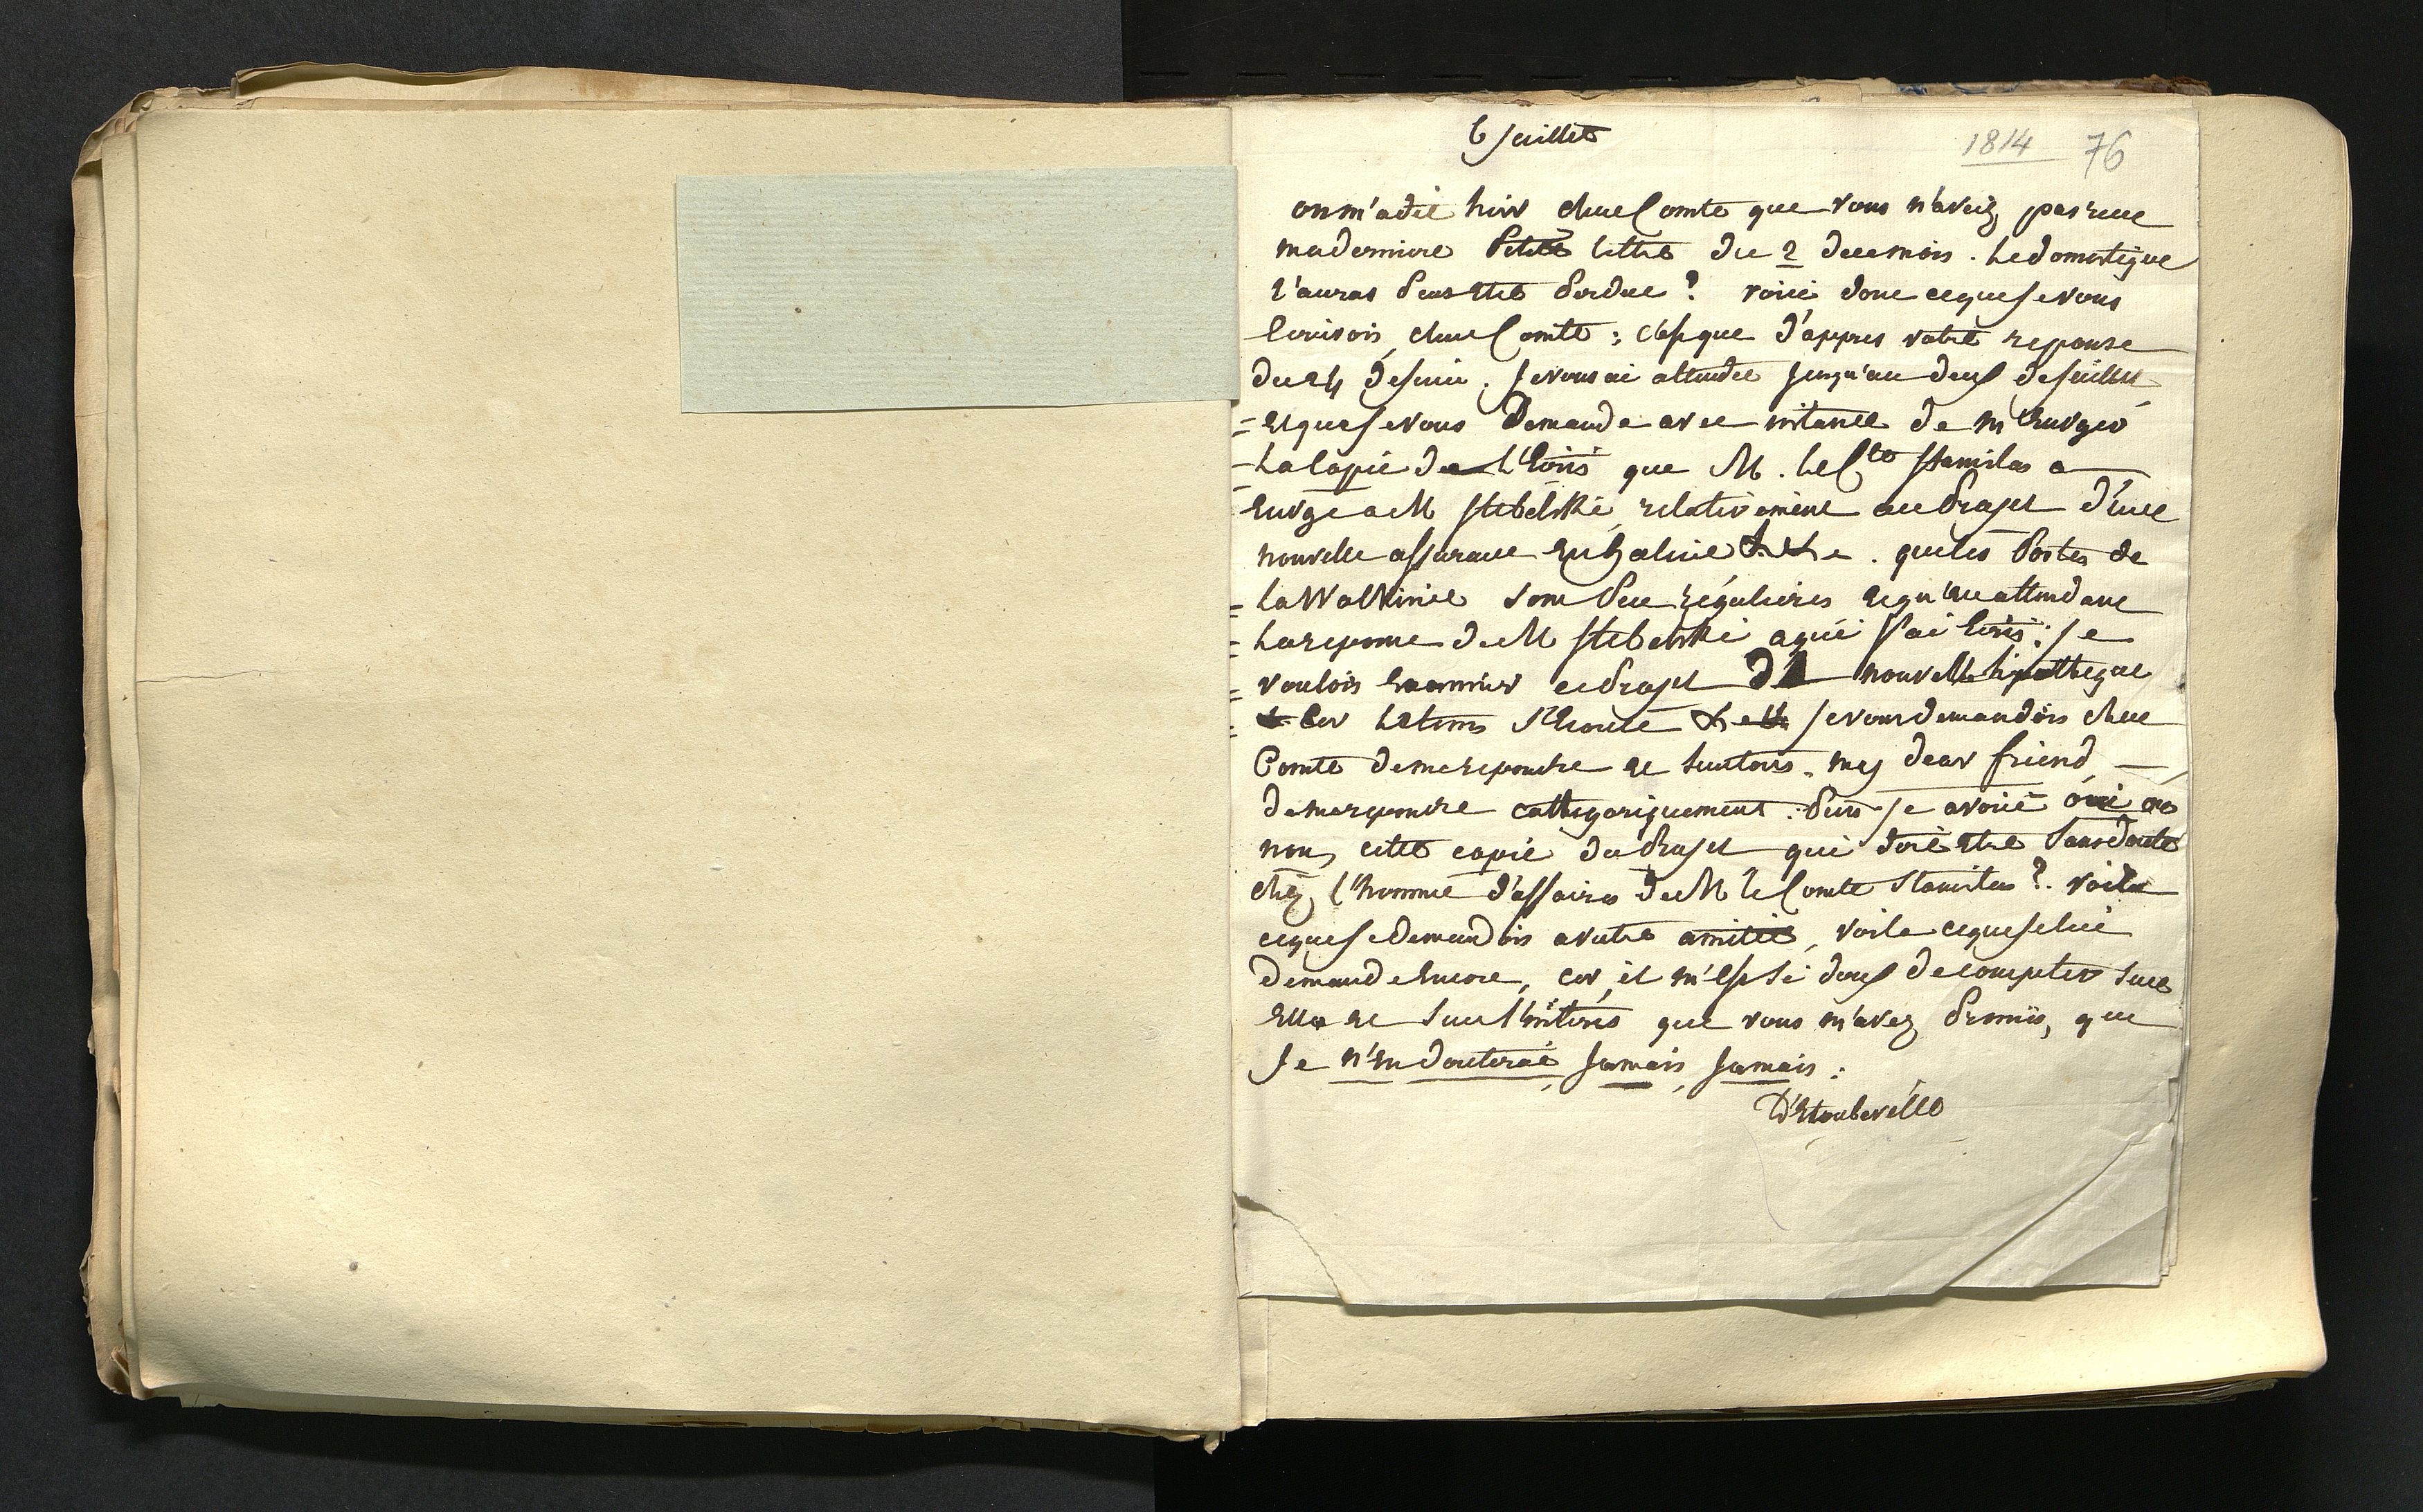 6 juillet
1814 76
on m'a dit hier cher Comte que vous n'aviez pas reçue
ma derniere Petite lettre du 2 de ce mois. Le domestique
l'auras Peut etre Perdue? voici donc ce que je vous
Ecrivois, cher Comte: c'est que d'appres votre reponse
du 24 de juin, je vous ai attendu jusqu'au deux de juillet
= et que je vous Demande avec instance de m'Envoyer
- La Copie de L'Ecrit que M. le Cte Stanislas a
Envoyé a M Stebelski, relativement au Projet d'une
nouvelle assurance En Galicie &&. que les Postes de
= la Wolkinie sont Peu régulieres et qu'en attendant
= La reponse de M Stebelski a qui j'ai Ecris; je
= voulois Examiner ce Projet nouvelle hipotheque
= Car le tems s'Ecoule je vous demandois cher
Comte de me repondre et surtout, my dear friend —
de me repondre cathegoriquement: Puis je avoir oui ou
non, cette copie du Projet qui doit etre Sans doute
chez l'homme d'affaires de M le Comte Stanislas? voila
ce que je demandois a votre amitié, voila ce que je lui
demande Encore, car, il m'est si doux de compter sur
Elle et sur l'intérês que vous m'avez Promis, que
Je n'en douterai Jamais, Jamais:
D'Etoubeville